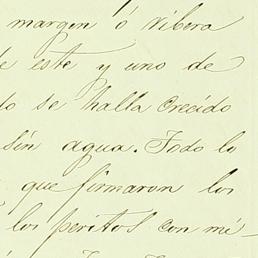 margen ó ribera
este y uno de
se halla crecido
sin agua. Todo lo
que firmaron los
los peritos con mé-